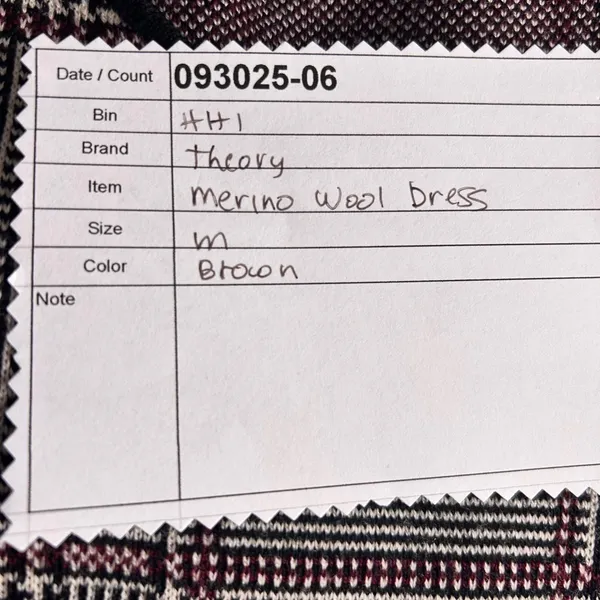 Date / Count 093025-06
Bin HH1
Brand Theory
Item Merino Wool Dress
Size m
Color Brown
Note